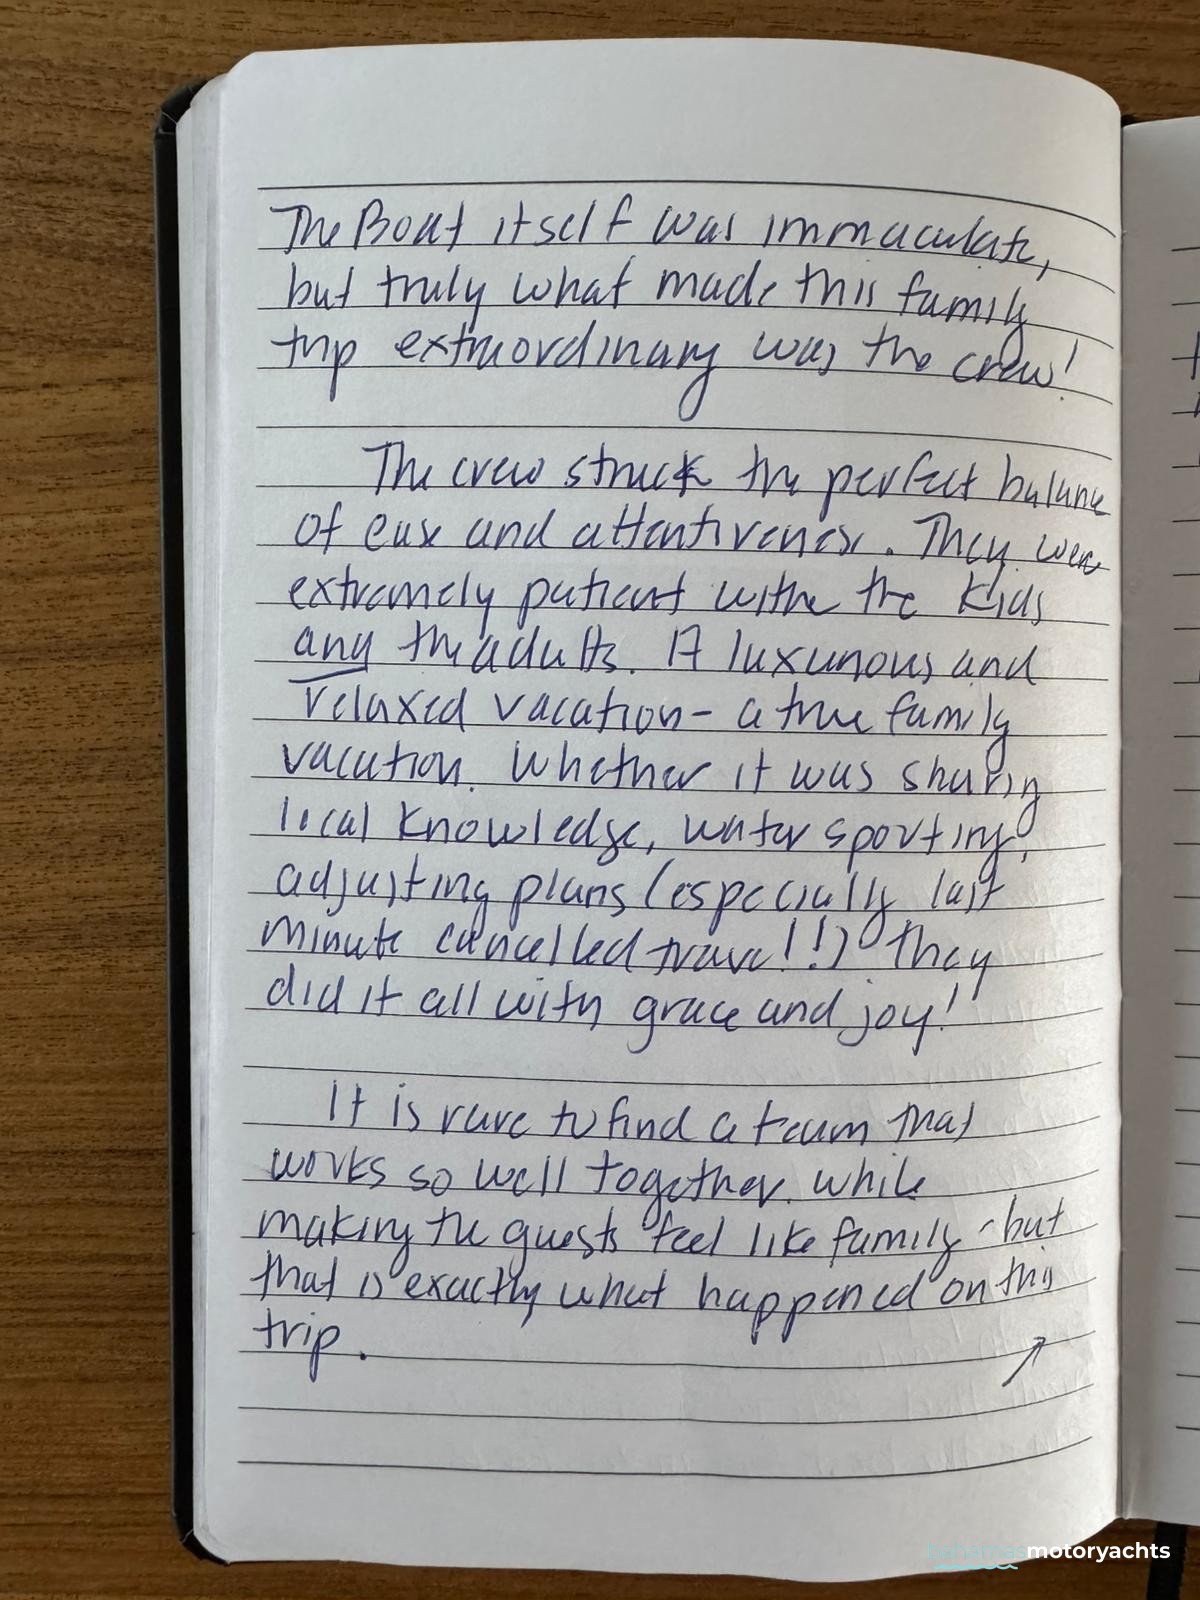 The Boat itself was immaculate,
but truly what made this family
trip extraordinary was the crew!
The crew struck the perfect balance
of ease and attentiveness. They were
extremely patient withe the Kids
and the adults. A luxurious and
relaxed vacation - a true family
vacation. Whether it was sharing
local knowledge, water sporting,
adjusting plans (especially last
minute cancelled travel!!) they
did it all with grace and joy!
It is rare to find a team that
works so well together while
making the guests feel like family - but
that is exactly what happened on this
trip.
bahamasmotoryachts